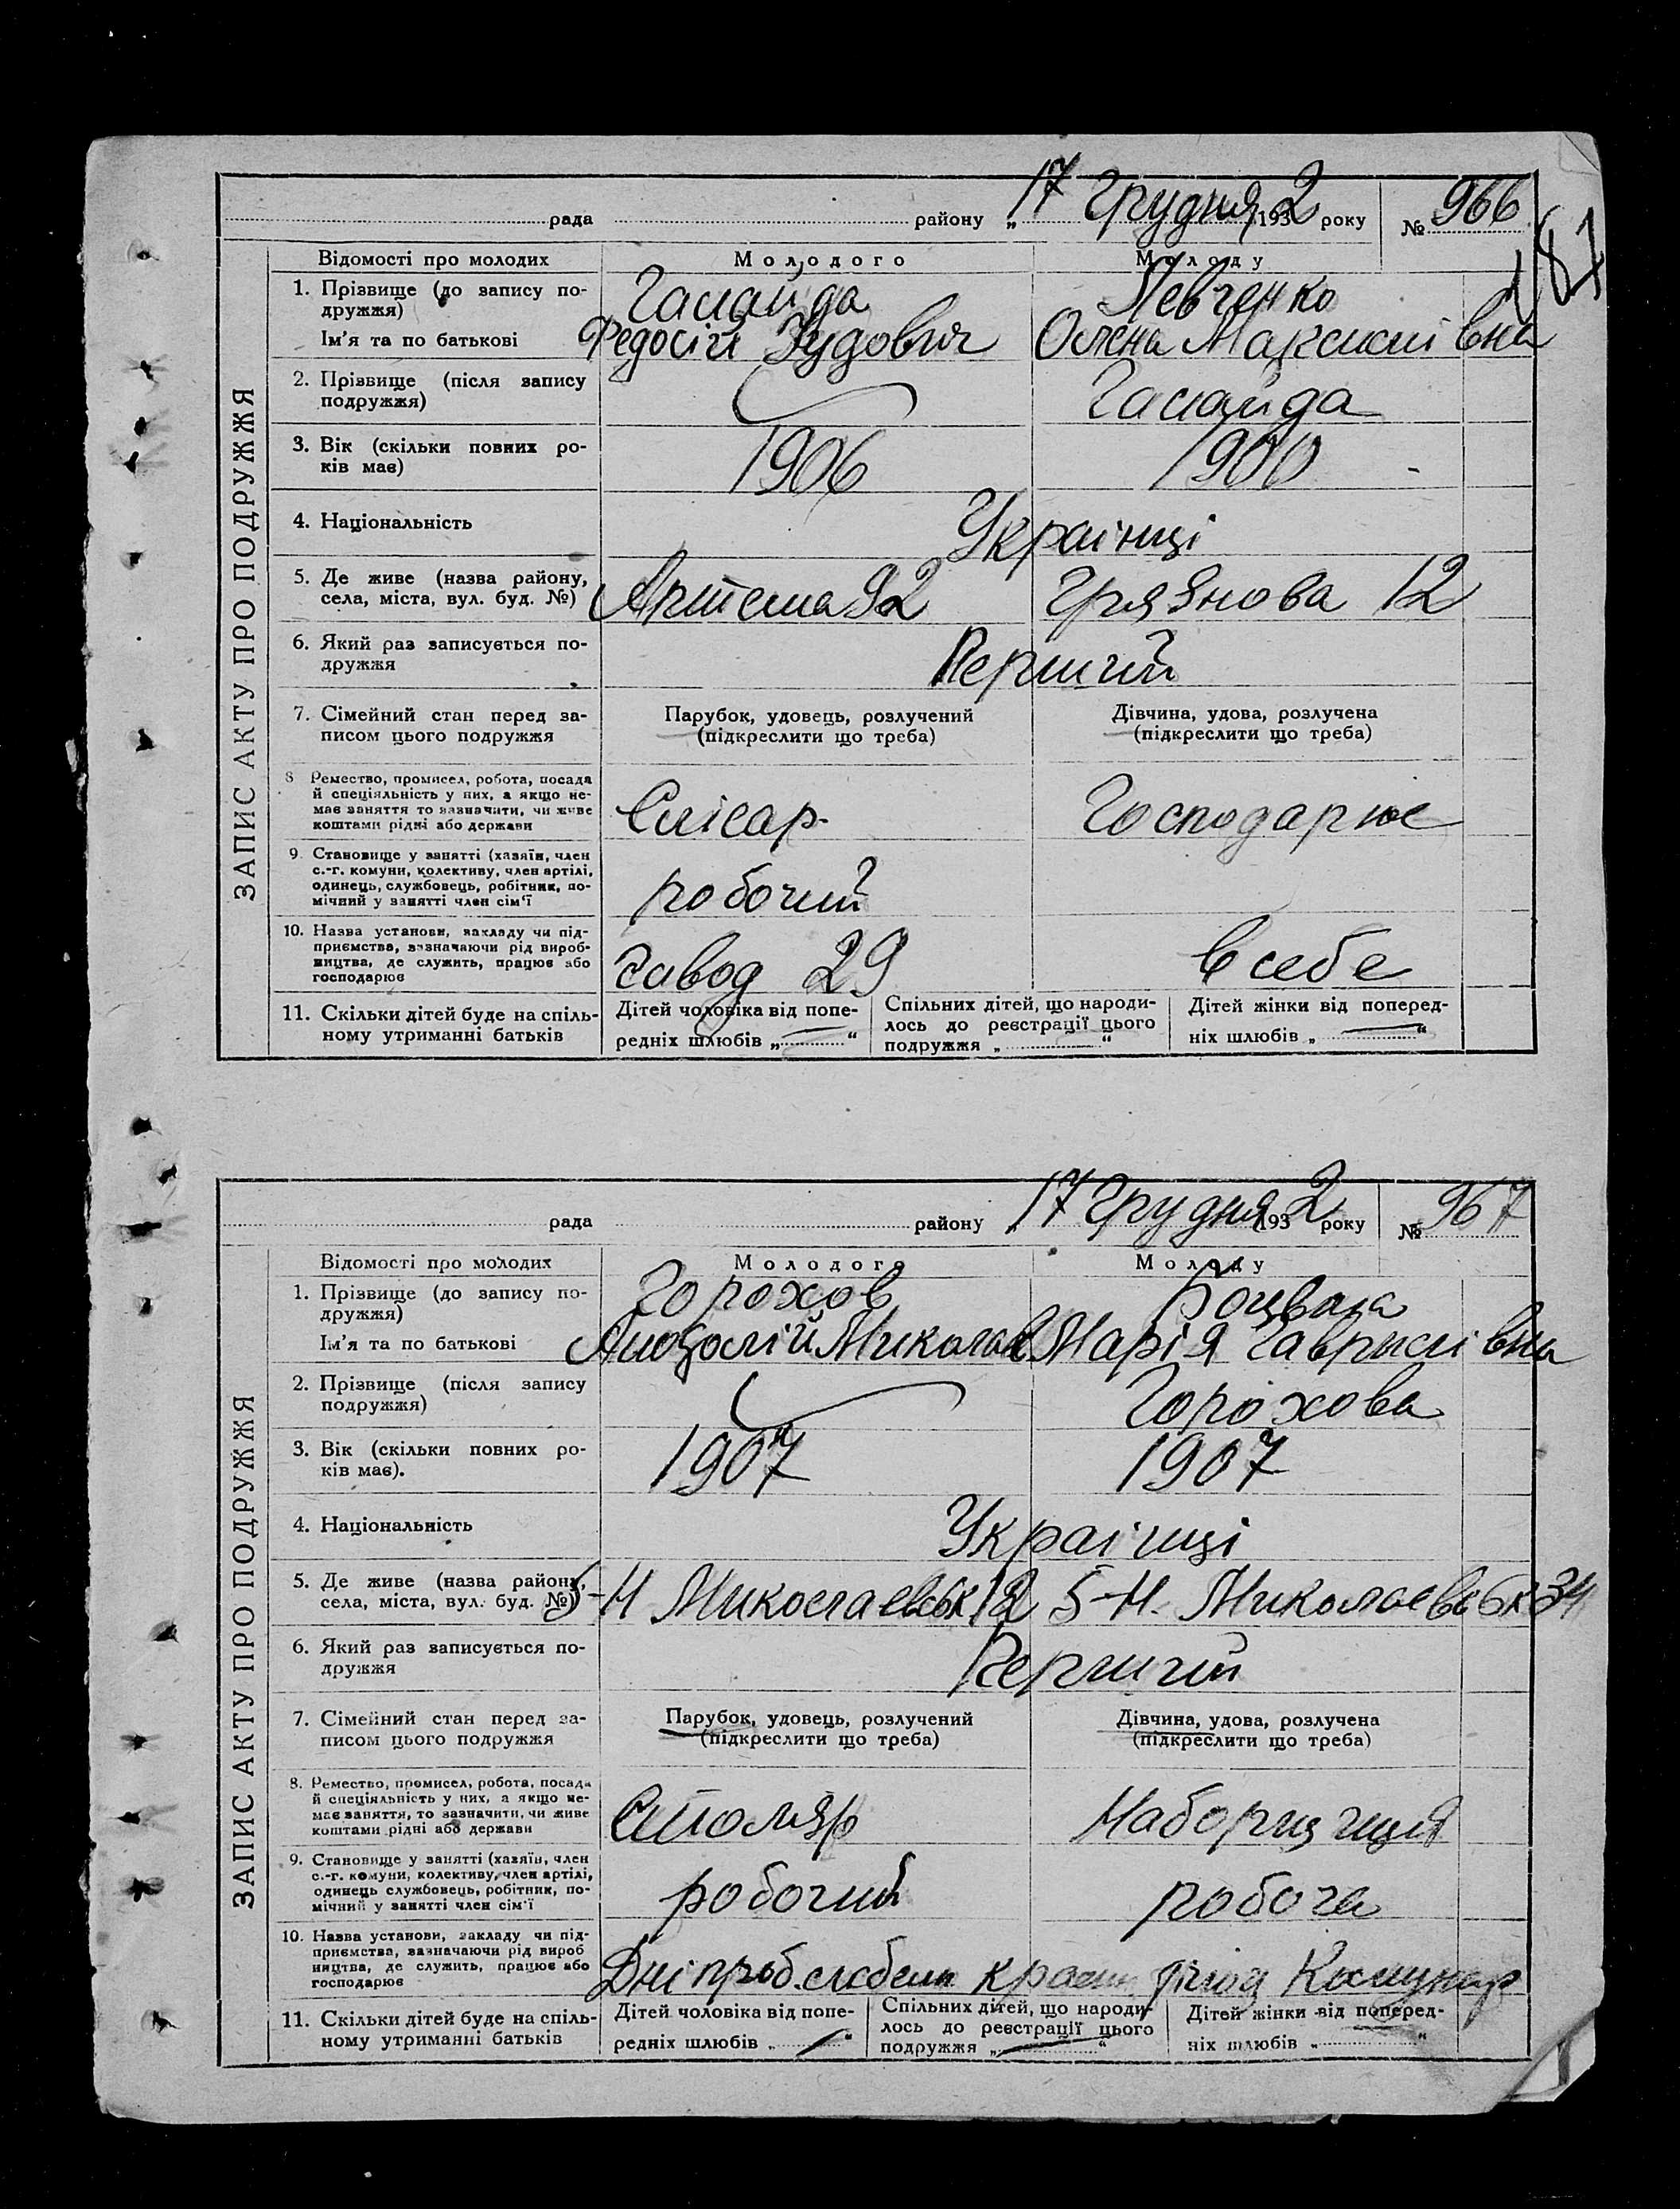 рада района „17 Грудня 1932 року № 966
187
ЗАПИС АКТУ ПРО ПОДРУЖЖЯ
Відомості про молодих Молодого Молоду
1. Прізвище (до запису по- Галайда Левченко
дружжя)
Ім'я та по батькові Федосій Олена Максимівна
2. Прізвище (після запису Галайда
подружжя)
3. Вік (скільки повних ро- 1906 1900
ків має)
4. Національність Українці
5. Де живе (назва району, Артема 92 Грязнова 12
села, міста, вул. буд. №)
6. Який раз записується по- Перший
дружжя
7. Сімейний стан перед за- Парубок, удовець, розлучений Дівчина, удова, розлучена
писом цього подружжя (підкреслити що треба) (підкреслити що треба)
8 Ремество, промисел, робота, посада
й спеціяльність у них, а якщо не-
має заняття то зазначати, чи живе Слісар Господарює
коштами рідні або держави
9. Становище у занятті (хазяїн, член
с.-г. комуни, колективу, член артілі,
одинець, службовець, робітник, по- робочий
мічний у занятті член сім'ї
10. Назва установи, закладу чи під-
приємства, зазначаючи рід вироб-
ництва, де служить, працює або завод 29 в себе
господарює
11. Скільки дітей буде на спіль- Дітей чоловіка від попе- Спільних дітей, що народи- Дітей жінки від поперед-
ному утриманні батьків редніх шлюбів „ “ лось до реєстрації цього ніх шлюбів „ “
подружжя „ “
рада району „17 Грудня 1932 року № 967
ЗАПИС АКТУ ПРО ПОДРУЖЖЯ
Відомості про молодих Молодого Молоду
1. Прізвище (до запису по- Горохов
дружжя)
Ім'я та по батькові Миколаєв Марія Гаврилівна
2. Прізвище (після запису Горохова
подружжя)
3. Вік (скільки повних ро- 1907 1907
ків має).
4. Національність Українці
5. Де живе (назва району, 5-Н Миколаевськ 12 5-Н. Миколаевськ 34
села, міста, вул. буд. №)
6. Який раз записується по- Перший
дружжя
7. Сімейний стан перед за- Парубок, удовець, розлучений Дівчина, удова, розлучена
писом цього подружжя (підкреслити що треба) (підкреслити що треба)
8. Ремество, промисел, робота, посада
й спеціяльність у них, а якщо не-
має заняття, то зазначити, чи живе Столяр Наборщиця
коштами рідні або держави
9. Становище у занятті (хазяїн, член
с.-г. комуни, колективу, член артілі,
одинець службовець, робітник, по- робочий робоча
мічний у занятті член сім'ї
10. Назва установи, закладу чи під-
приємства, зазначаючи рід вироб
ництва, де служить, працює або Комунар
господарює
11. Скільки дітей буде на спіль- Дітей чоловіка від попе- Спільних дітей, що народи- Дітей жінки від поперед-
ному утриманні батьків редніх шлюбів „ “ лось до реєстрації цього ніх шлюбів „ “
подружжя „ “